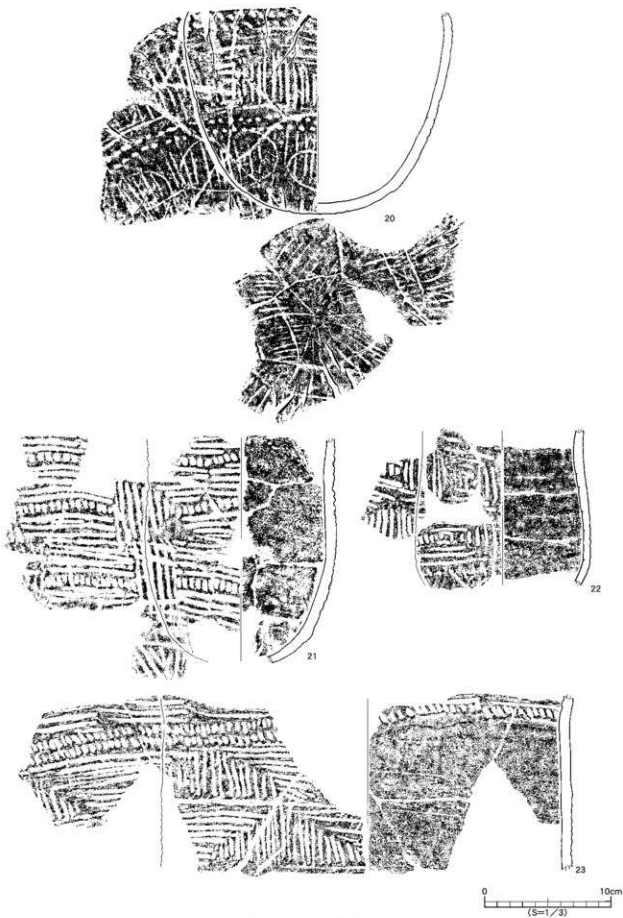 20
21
22
23
0 10cm
(S=1/3)